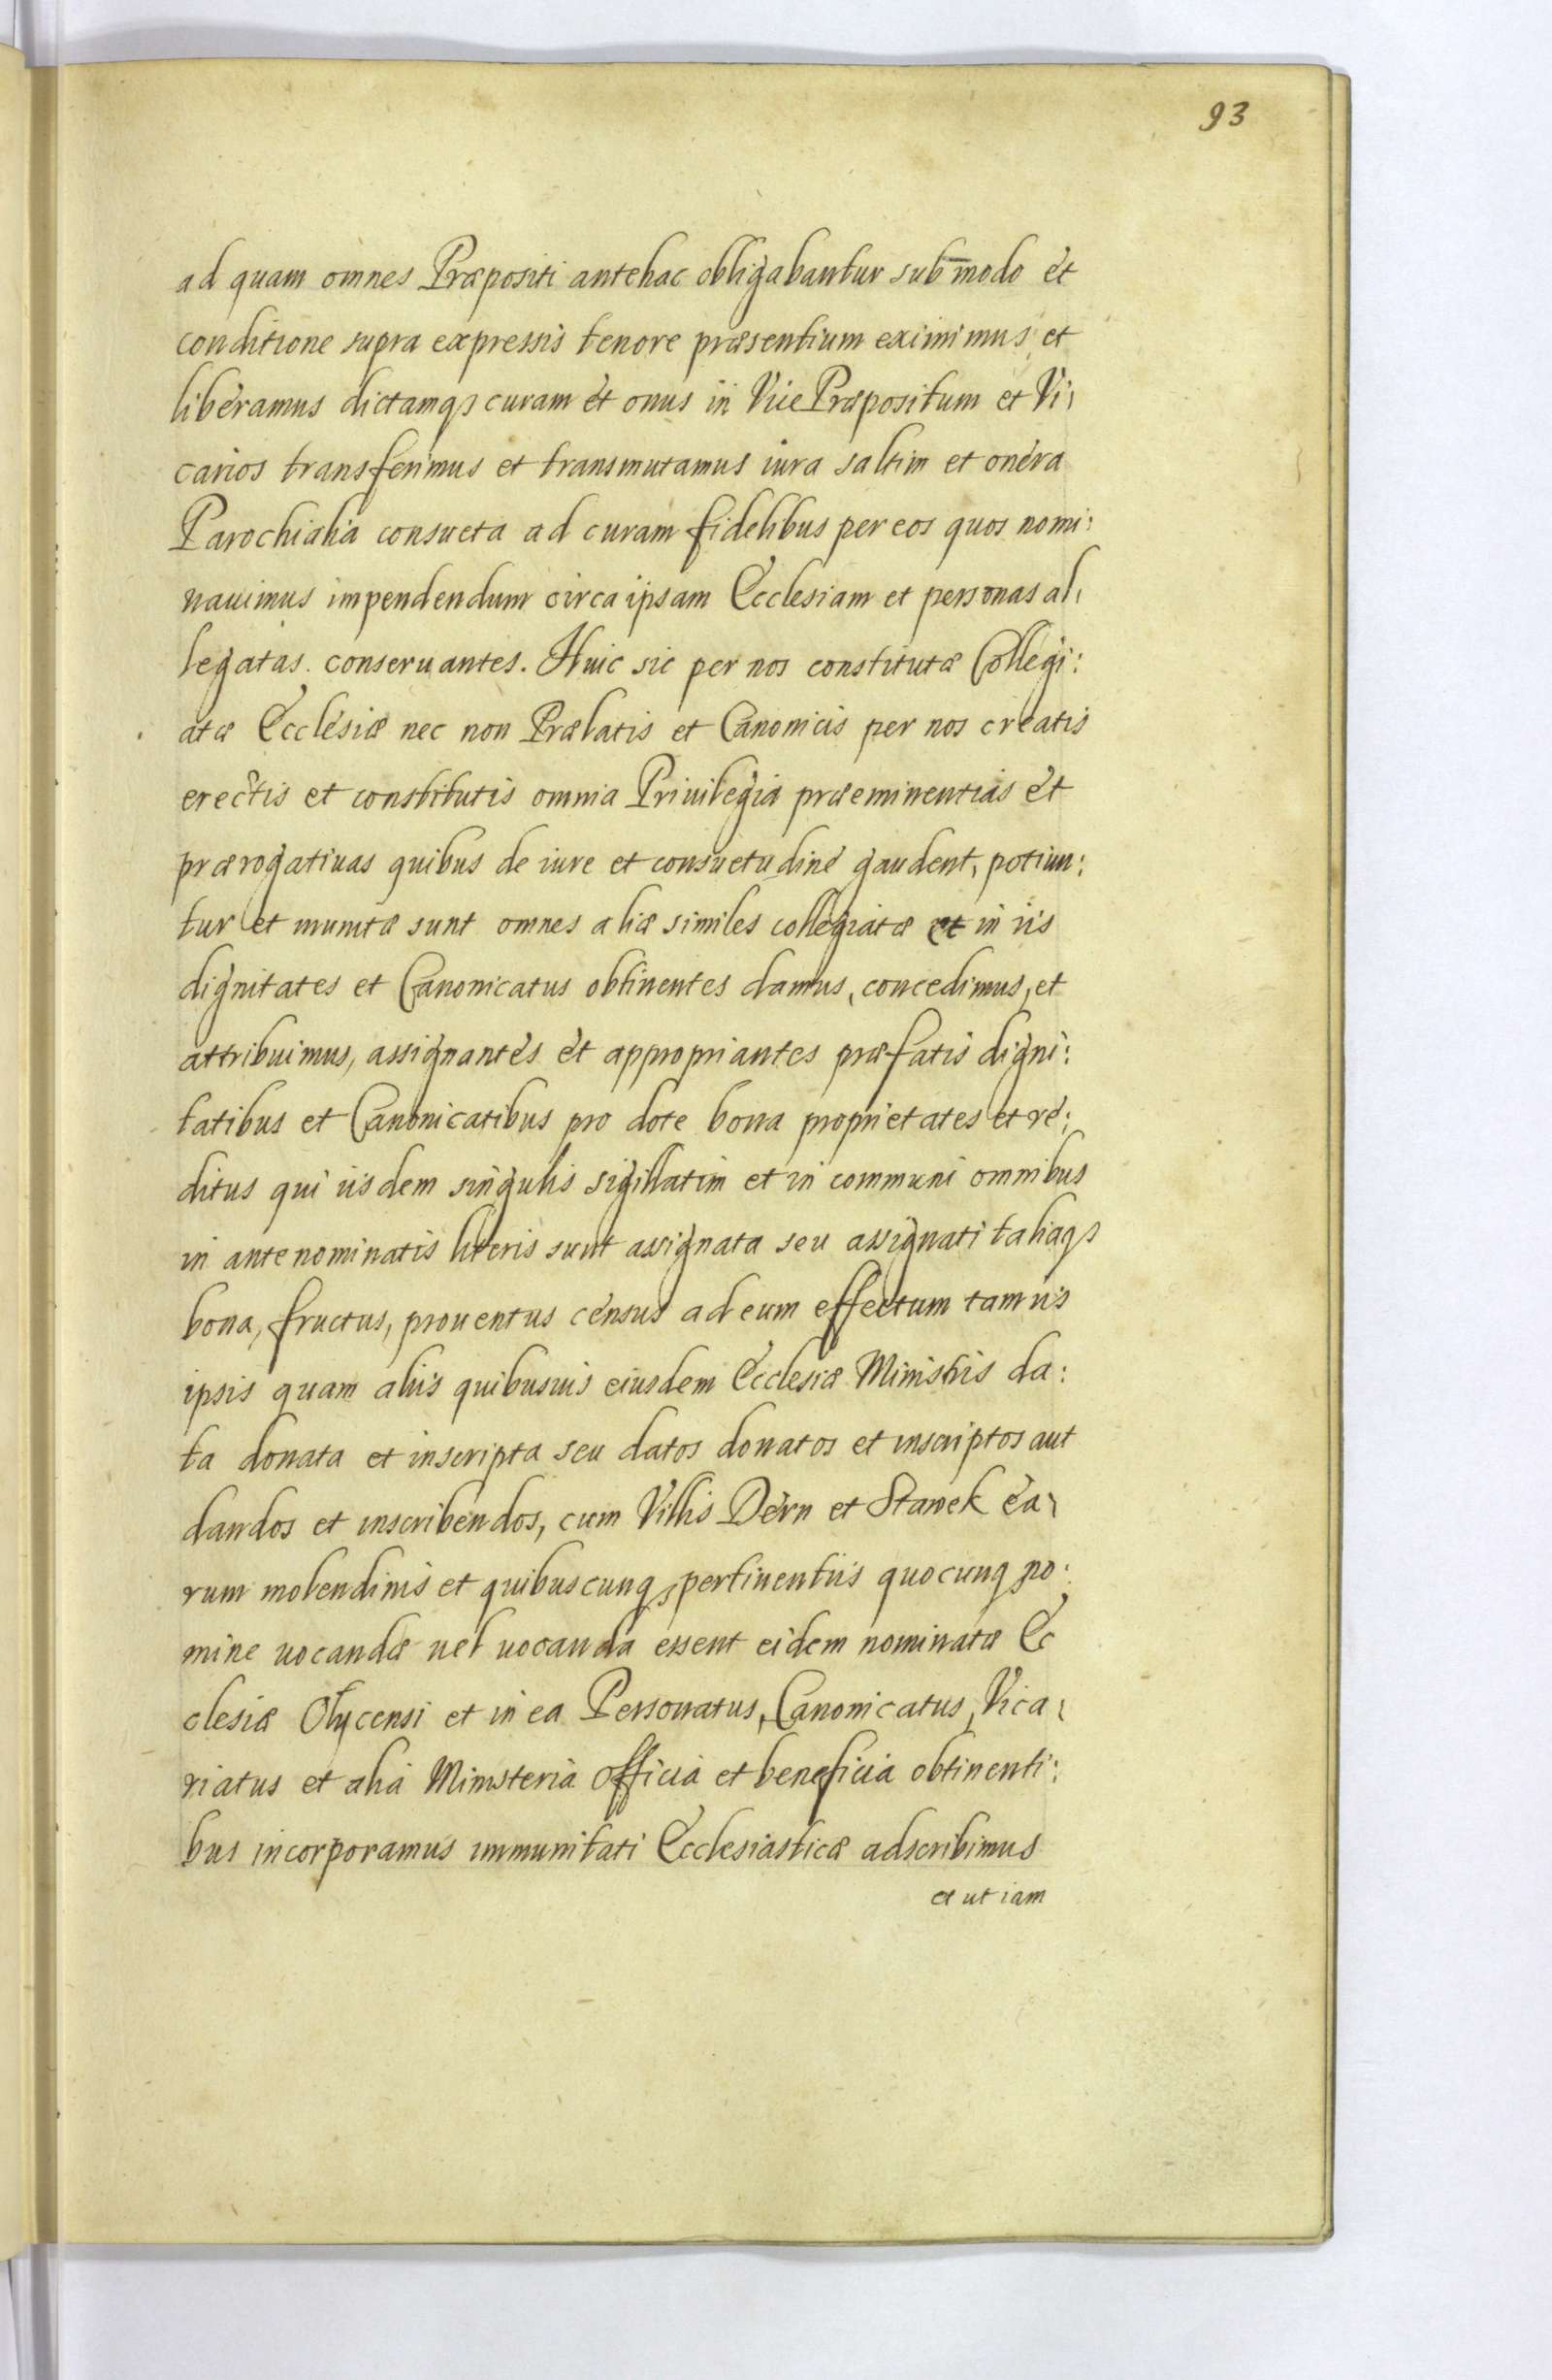 93
ad quam omnes Præpositi antehac obligabantur sub modo et
conditione supra expressis tenore præsentium eximimus et
liberamus dictamqꝫ curam et onus in Vice Præpositum et Vi,
carios transferimus et transmutamus iura saltim et onera
Parochialia consueta ad curam fidelibus per eos quos nomi:
nauimus impendendum circa ipsam Ecclesiam et personas al,
legatas conseruantes. Huic sic per nos constitutæ Collegi:
atæ Ecclesiæ nec non Prælatis et Canonicis per nos creatis
erectis et constitutis omnia Priuilegia præeminentias et
prærogatiuas quibus de iure et consuetudine gaudent, potiun:
tur et munitæ sunt omnes aliæ similes collegiatæ et in iis
dignitates et Canonicatus obtinentes damus, concedimus, et
attribuimus, assignantes et appropriantes præfatis digni:
tatibus et Canonicatibus pro dote bona proprietates et re:
ditus qui iisdem singulis sigillatim et in communi omnibus
in antenominatis literis sunt assignata seu assignati taliaqꝫ
bona, fructus, prouentus census ad eum effectum tam iis
ipsis quam aliis quibusuis eiusdem Ecclesiæ Ministris da:
ta donata et inscripta seu datos donatos et inscriptos aut
dandos et inscribendos, cum Villis Dern et Stawek ea,
rum molendinis et quibuscunqꝫ pertinentiis quocunqꝫ no:
mine uocandæ uel uocanda essent eidem nominatæ Ec
clesiæ Olycensi et in ea Personatus, Canonicatus, Vica:
riatus et alia Ministeria officia et beneficia obtinenti:
bus incorporamus immunitati Ecclesiasticæ adscribimus
et ut iam